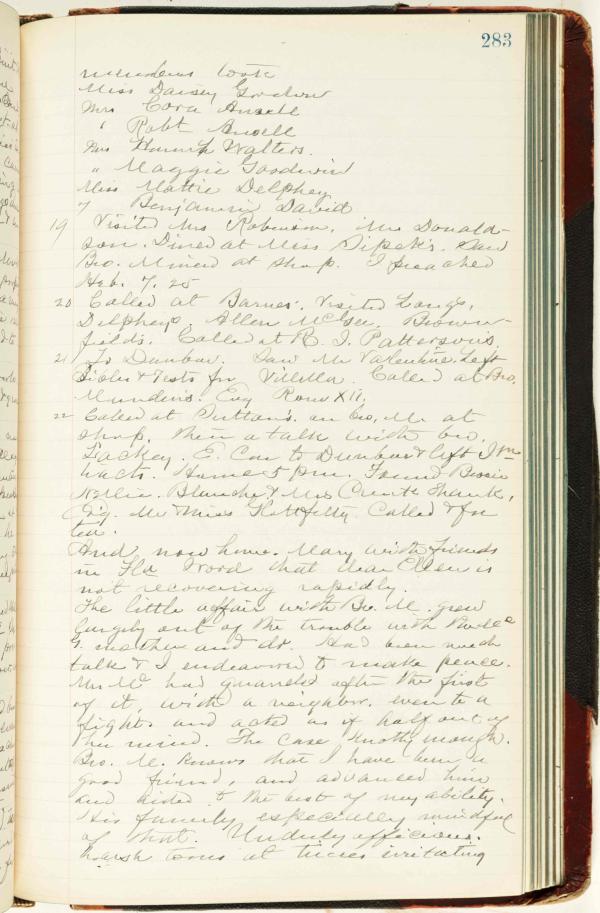 283
Miss Daisey Goodwin
Mrs Cora Ansell
" Robt Ansell
Mrs Hannah Walters.
" Maggie Goodwin
Miss Mattie Delphey
" Benjamin David
19 Visited Mrs Robinson, Mr Donald-
son. Dined at Miss Sipek's. Saw
Bro. Miner at shop. I preached
Heb. 7, 25
20 Called at Barnes'. Visited Longs,
Delpheys, Allen McGee, Brown-
fields. Called at R. J. Patterson's
21 To Dunbar. Saw Mr Valentine. Left
Bibles & Tests for Villilla. Called at Bro.
Mundens. Evg Rom XII,
22 Called at Sutton's. on bro. M. at
shop. Then a talk with bro.
Lackey. E. Car to Dunbar & left I
tracts. Home 5 pm. Found Bessie
Nellie. Blanche & Mrs Thank.
Evg. Mr & Miss called & for
tea.
And now home. Mary with friends
in Fla Word that dear Ellen is
not recovering rapidly.
The little affair with Bro. M. grew
largely out of the trouble with
G. mother and dr. Had been much
talk & I endeavored to make peace.
Mrs M. had quareled after the first
of it, with a neighbor, even to a
fight, and acted as if half out of
her mind. The case knotty enough.
Bro. M. knows that I have been a
good friend, and advanced him
and aided to the best of my ability.
His family especially mindful
of that. Unduly officious.
Harsh tones at times irritating